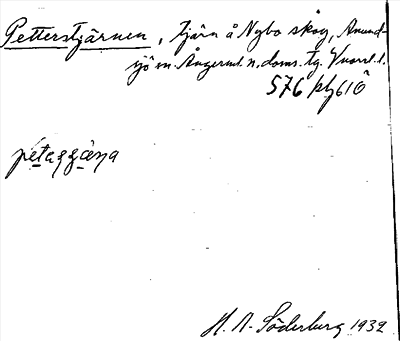 Petterstjärnen, tjärn å Nybo skog, Anund-
sjö sn. Ångerml. n. doms. tg. Vuorl. l.
576
pétaʂʂæ̀ṇa
H. A. Söderberg 1932